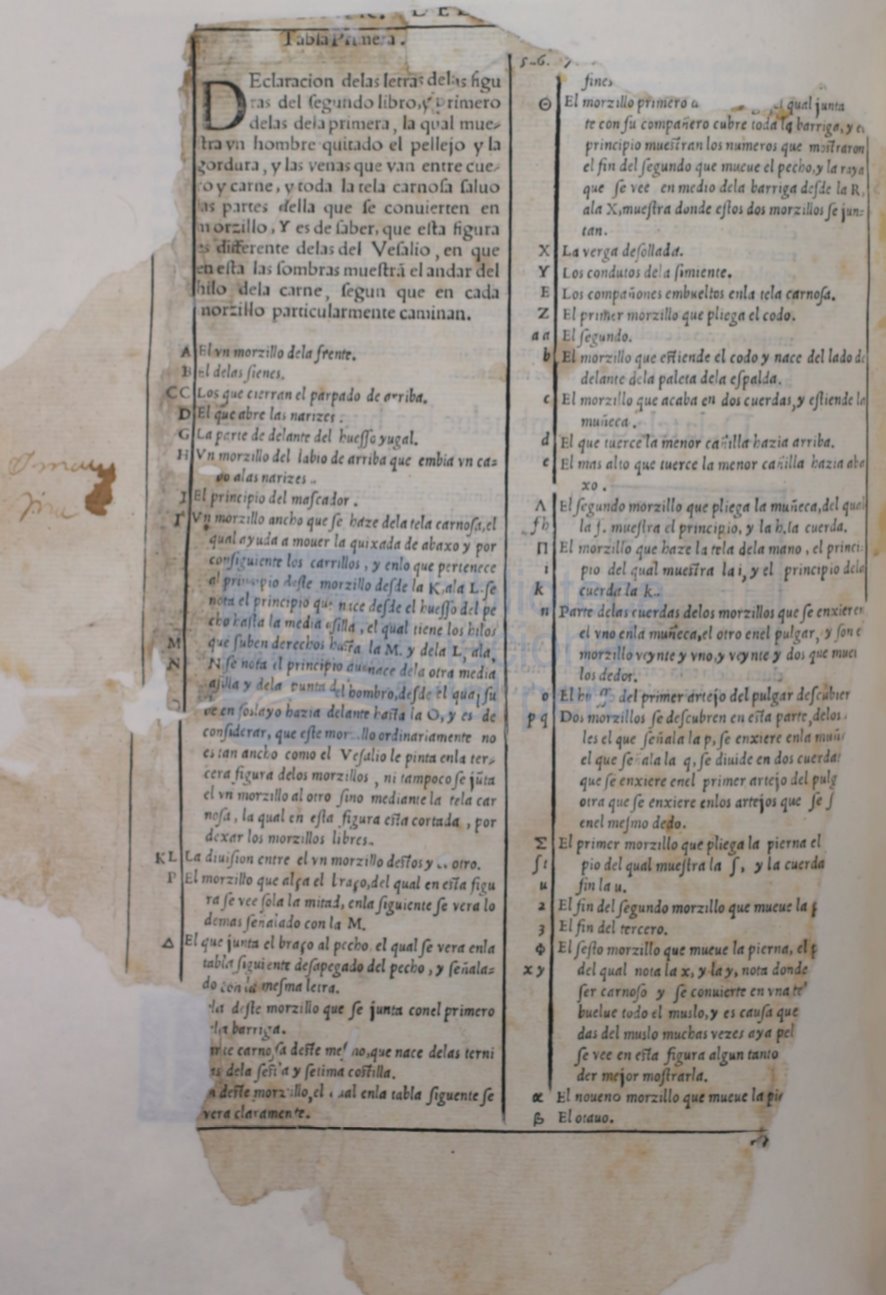 Tabla Primera.
DEclaracion delas letras delas figu
ras del segundo libro, y primero
delas dela primera, la qual mue-
stra vn hombre quitado el pellejo y la
gordura, y las venas que van entre cue-
ro y carne, y toda la tela carnosa saluo
las partes della que se conuierten en
morzillo. Y es de saber, que esta figura
es differente delas del Vesalio, en que
en esta las sombras muestrã el andar del
hilo dela carne, segun que en cada
morzillo particularmente caminan.
A El vn morzillo dela frente.
B el delas sienes.
CC Los que cierran el parpado de arriba.
D El que abre las narizes.
G La parte de delante del huesso yugal.
H Vn morzillo del labio de arriba que embia vn ca-
bo alas narizes.
I El principio del mascador.
Γ Vn morzillo ancho que se haze dela tela carnosa, el
qual ayuda a mouer la quixada de abaxo y por
consiguiente los carrillos, y enlo que pertenece
al principio deste morzillo desde la K, ala L. se
nota el principio que nace desde el huesso del pe
cho hasta la media asilla, el qual tiene los hilos
M que suben derechos hasta la M. y dela L, ala,
N N se nota el principio que nace dela otra media
asilla y dela punta del hombro, desde el qual su
ve en soslayo hazia delante hasta la O, y es de
considerar, que este morzillo ordinariamente no
es tan ancho como el Vesalio le pinta enla ter-
cera figura delos morzillos, ni tampoco se jũta
el vn morzillo al otro sino mediante la tela car
nosa, la qual en esta figura esta cortada, por
dexar los morzillos libres.
KL La diuision entre el vn morzillo destos y otro.
P El morzillo que alça el braço, del qual en esta figu
ra se vee sola la mitad, enla siguiente se vera lo
demas señalado con la M.
Δ El que junta el braço al pecho, el qual se vera enla
tabla siguiente desapegado del pecho, y señala-
do con la mesma letra.
deste morzillo que se junta conel primero
la barriga.
carnosa deste mesmo, que nace delas terni
dela sesta y setima costilla.
deste morzillo, el qual enla tabla siguente se
vera claramente.
5-6. 7
fines
Θ El morzillo primero qual junta
te con su compañero cubre toda la barriga, y
principio muestran los numeros que mostraron
el fin del segundo que mueue el pecho, y la raya
que se vee en medio dela barriga desde la R,
ala X, muestra donde estos dos morzillos se jun-
tan.
X La verga desollada.
Y Los condutos dela simiente.
E Los compañones embueltos enla tela carnosa.
Z El primer morzillo que pliega el codo.
aa El segundo.
b El morzillo que estiende el codo y nace del lado de
delante dela paleta dela espalda.
c El morzillo que acaba en dos cuerdas, y estiende la
muñeca.
d El que tuerce la menor cañilla hazia arriba.
e El mas alto que tuerce la menor cañilla hazia aba
xo.
Λ El segundo morzillo que pliega la muñeca, del qual
fh la f. muestra el principio, y la h, la cuerda.
Π El morzillo que haze la tela dela mano, el princi
i pio del qual muestra la i, y el principio dela
k cuerda la k.
n Parte delas cuerdas delos morzillos que se enxieren
el vno enla muñeca, el otro enel pulgar, y son el
morzillo veynte y vno, y veynte y dos que
los dedos.
o El del primer artejo del pulgar descubier
pq Dos morzillos se descubren en esta parte, delos
les el que señala la p, se enxiere enla muñ
el que señala la q, se diuide en dos cuerdas
que se enxiere enel primer artejo del pulg
otra que se enxiere enlos artejos que se
enel mesmo dedo.
Σ El primer morzillo que pliega la pierna el
ſt pio del qual muestra la ſ, y la cuerda
u fin la u.
2 El fin del segundo morzillo que mueue la
3 El fin del tercero.
Φ El sesto morzillo que mueue la pierna, el
xy del qual nota la x, y la y, nota donde
ser carnoso y se conuierte en vna te
buelue todo el muslo, y es causa que
das del muslo muchas vezes aya
se vee en esta figura algun tanto
der mejor mostrarla.
α El noueno morzillo que mueue la
β El otauo.